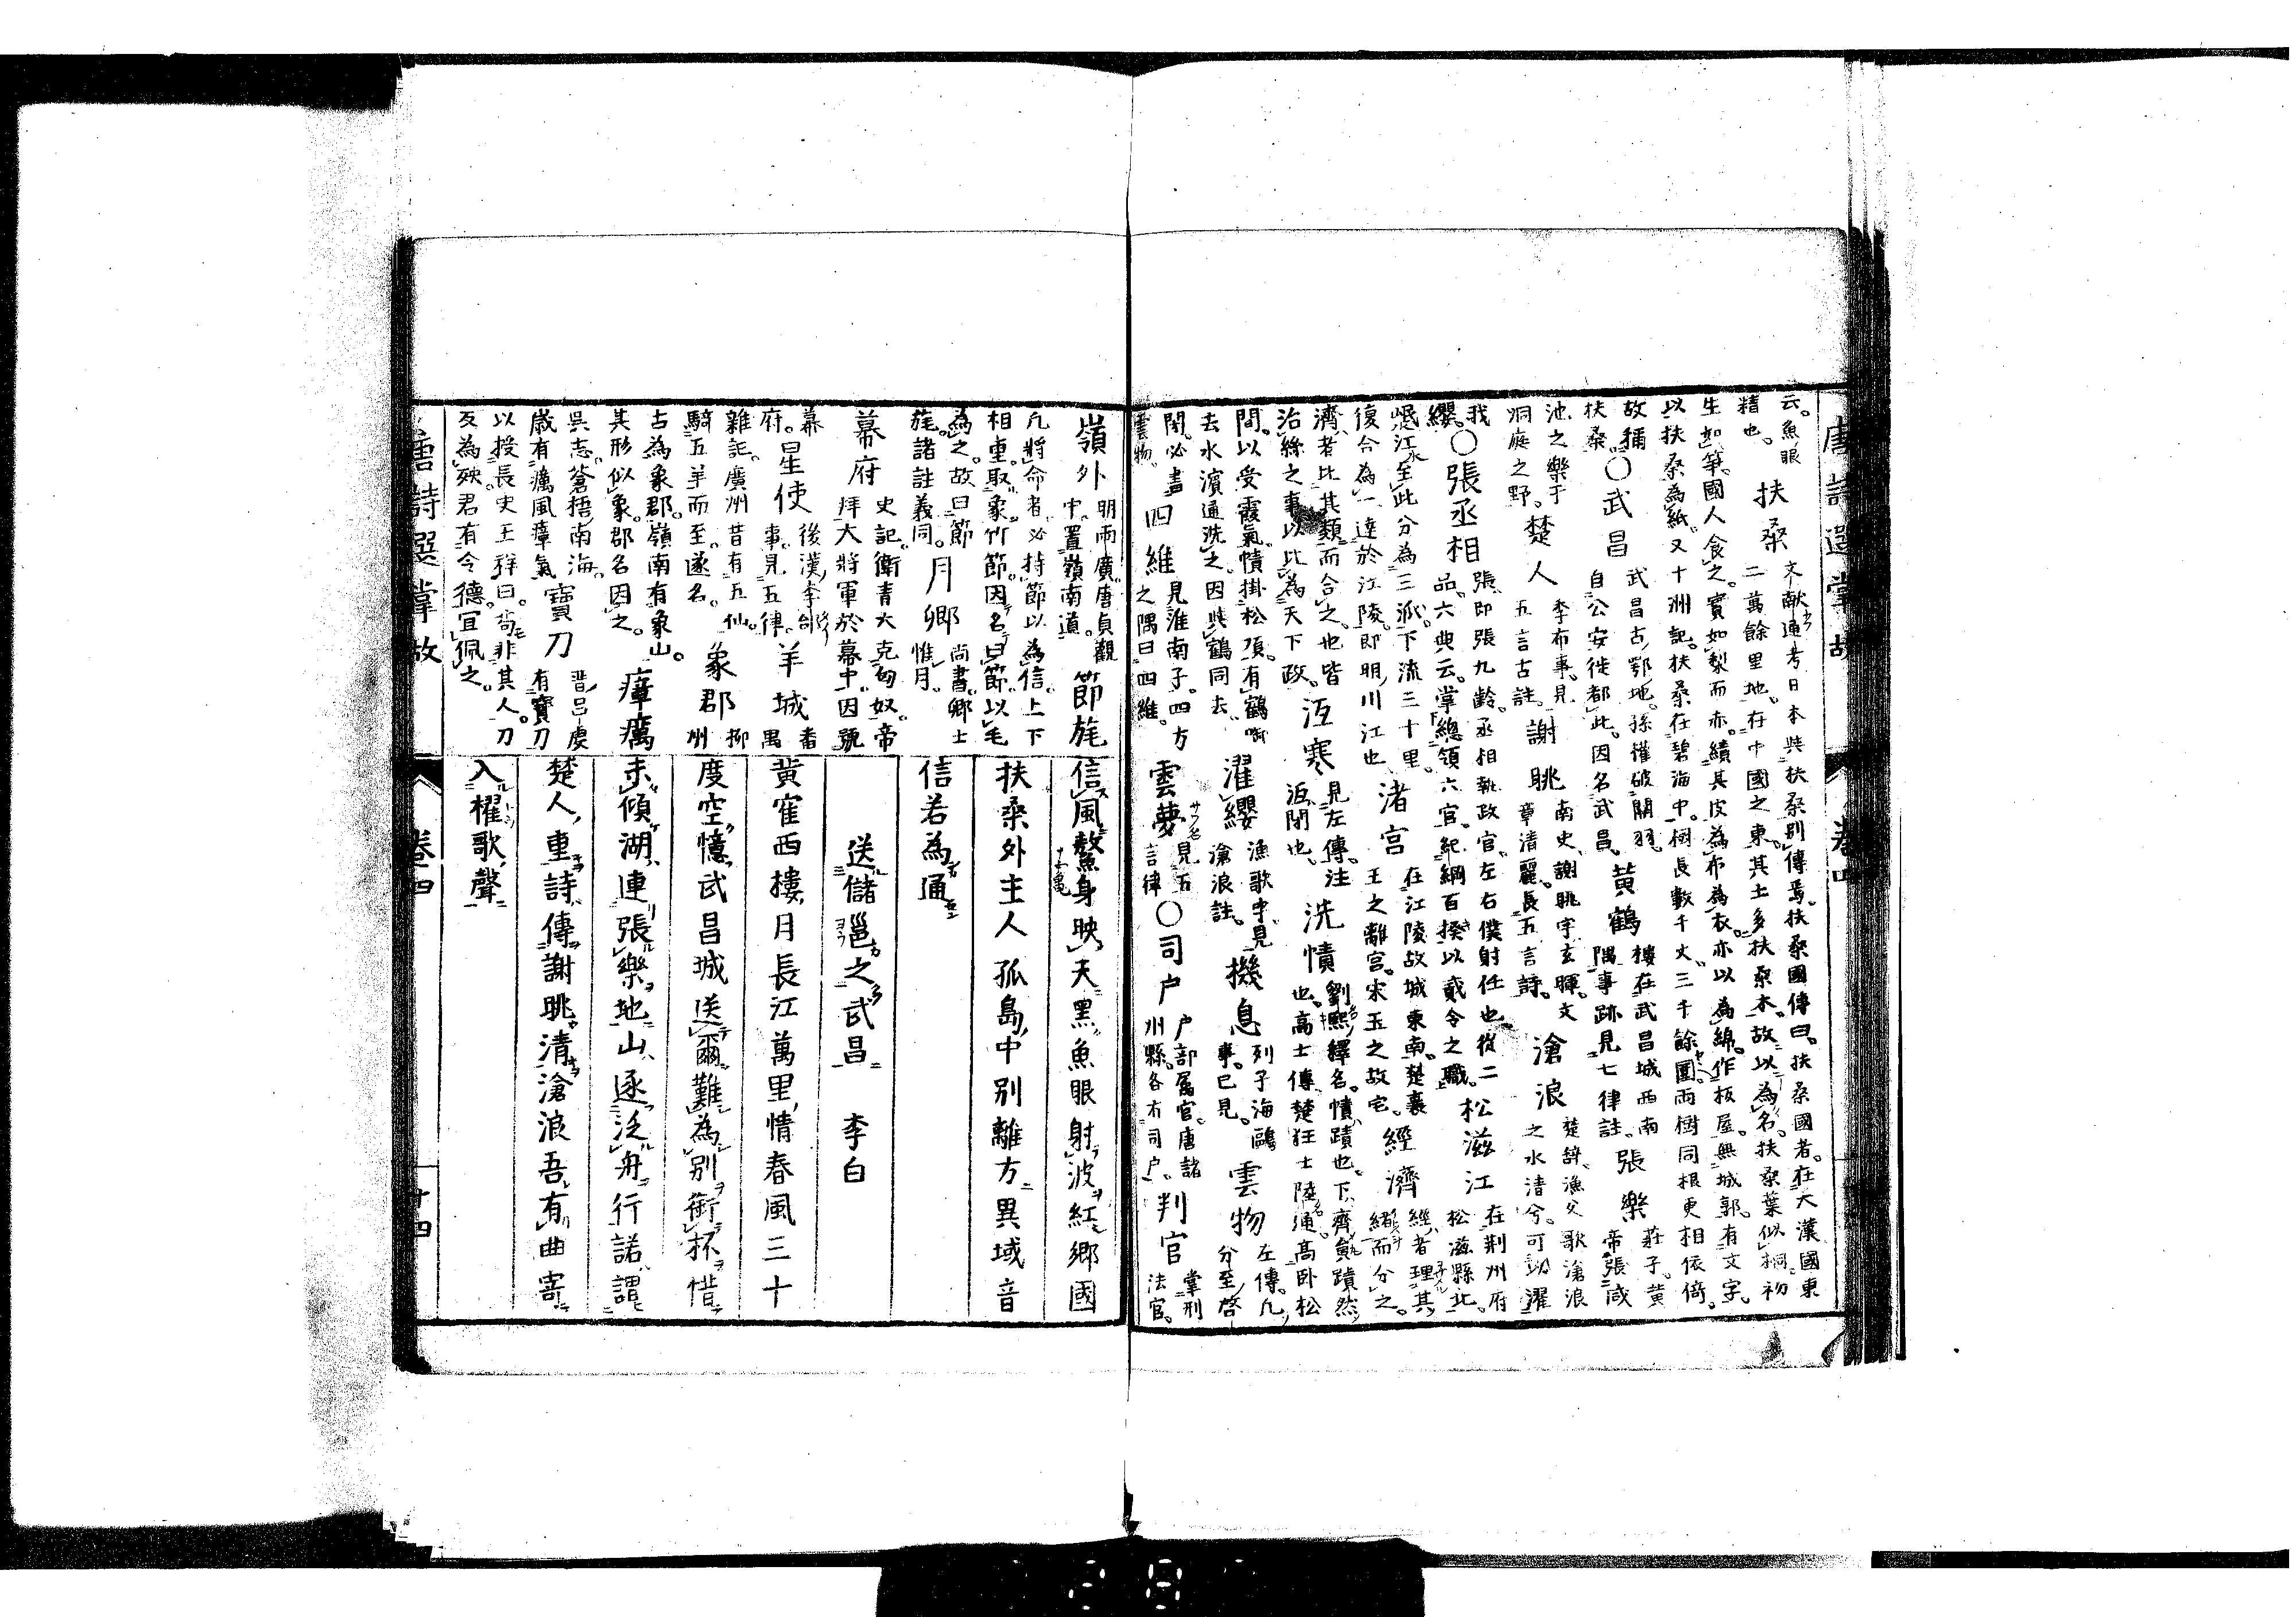 唐詩選掌故
卷四
云。魚眼
精也。
扶桑
文献通考日本與扶桑別傳焉。扶桑國傳曰。扶桑國者。在大漢國東
二萬餘里地。在中國之東。其土多扶桑木。故以為名。扶桑葉似桐。初
生如筍。國人食之。實如梨而赤。績其皮為布為衣。亦以為綿。作板屋。無城郭。有文字。
以扶桑為紙。又十洲記。扶桑在碧海中。樹長數千丈。三千餘圍。両樹同根更相依倚。
故稱
扶桑。
〇武昌
武昌古鄂地。孫權破關羽。
自公安徙都此。因名武昌。
黄鶴
樓在武昌城西南
隅事跡見七律註。
張樂
莊子。黄
帝張咸
池之樂于
洞庭之野。
楚人
李布事。見
五言古註。
謝眺
南史謝眺字玄暉。文
章清麗。長五言詩。
滄浪
楚辞漁父歌滄浪
之水清兮。可以濯
我
纓。
〇張丞相
張即張九齡。丞相執政官。左右僕射任也從二
品。六典云。掌總領六官。紀綱百揆以貳令之職。
松滋江
在荆州府
松滋縣北。
岷江水至此分為三派。下流三十里。
復合為一達於江陵。即明川江也
渚宮
在江陵故城東南。楚襄
王之離宮。宋玉之故宅。
經濟
經者理其
緒而分之。
濟者比其類而合之也。皆
治絲之事。以比為天下政。
沍寒
見左傳。注
沍閉也。
洗幘
劉熙釋名。幘蹟也。下齊眞蹟然
也。高士傳楚狂士陸通。高卧松
間。以受霞氣。幘掛松頂。有鶴啣
去水濱通洗之。因與鶴同去。
濯纓
漁歌中。見
滄浪註。
機息
列子海鷗
事。已見。
雲物
左傳。凡
分至啓
閉。必書
雲物。
四維
見淮南子。四方
之隅曰四維。
雲夢
見五
言律
〇司户
户部屬官。唐諸
州縣。各有司户。
判官
掌刑
法官。
嶺外
明両廣。唐貞觀
中。置嶺南道。
節旄
凡將命者必持節以為信。上下
相重。取象竹節。因名曰節。以毛
為之。故曰節
旄。諸註義同。
月卿
尚書。卿士
惟月。
幕府
史記。衛青大克匈奴。帝
拜大將軍於幕中。因號
幕
府。
星使
後漢李郃
事。見五律。
羊城
番禺
雜記。廣州昔有五仙。
騎五羊而至。遂名。
象郡
柳
州
古為象郡。嶺南有象山。
其形似象。郡名因之。
瘴癘
呉志。蒼梧南海。
歳有癘風瘴氣
寶刀
晋呂虔
有寶刀
以授長史王祥曰。苟非其人。刀
反為殃。君有令德。宜佩之。
信風鰲身映天黒魚眼射波紅郷國
扶桑外主人孤島中別離方異域音
信若為通
送儲邕之武昌　李白
黄寉西樓月長江萬里情春風三十
度空憶武昌城送爾難為別銜杯惜
未傾湖連張樂地山逐泛舟行諾謂
楚人重詩傳謝眺清滄浪吾有曲寄
入櫂歌聲
唐詩選掌故
卷四
十四